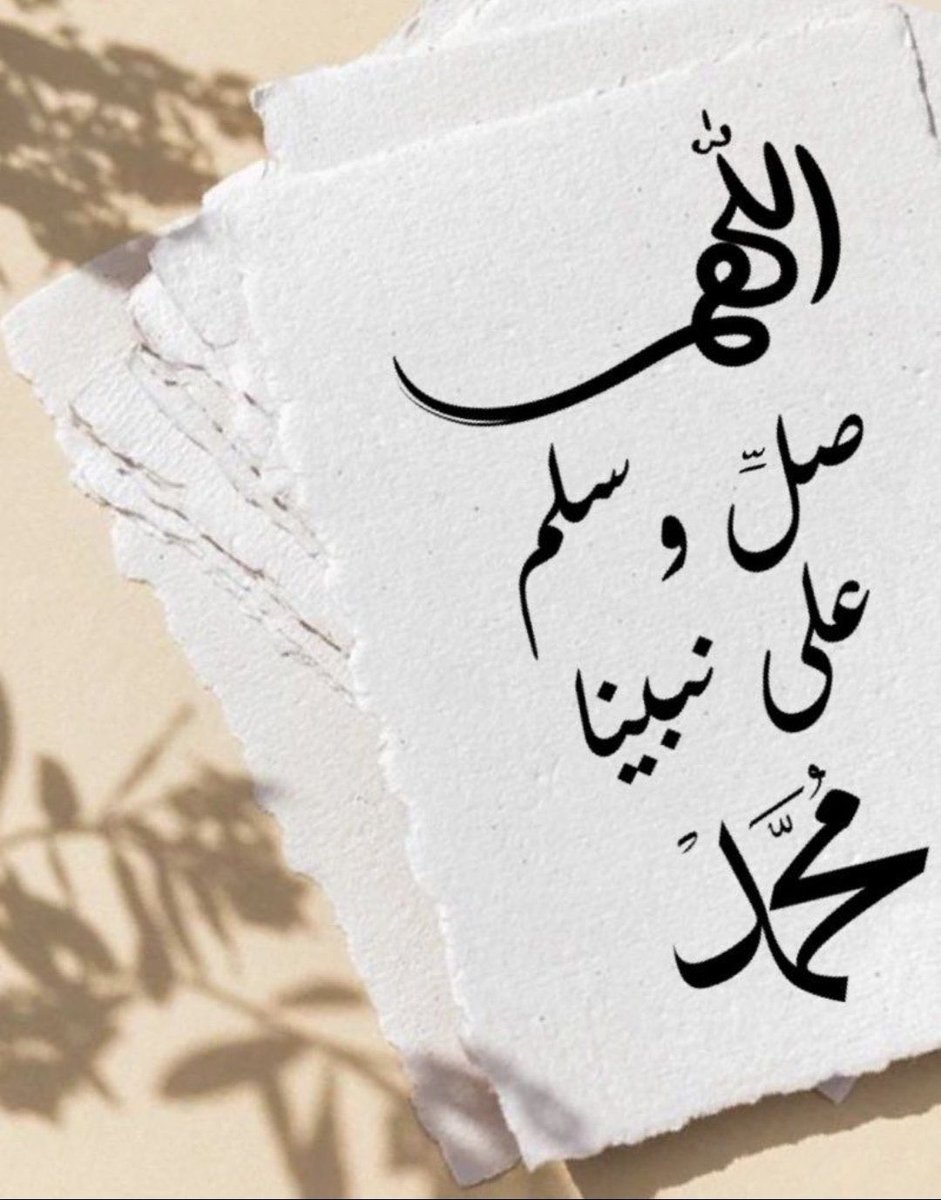 اللهم
صلِّ و سلم
على نبينا
مُحمَّدﹴ